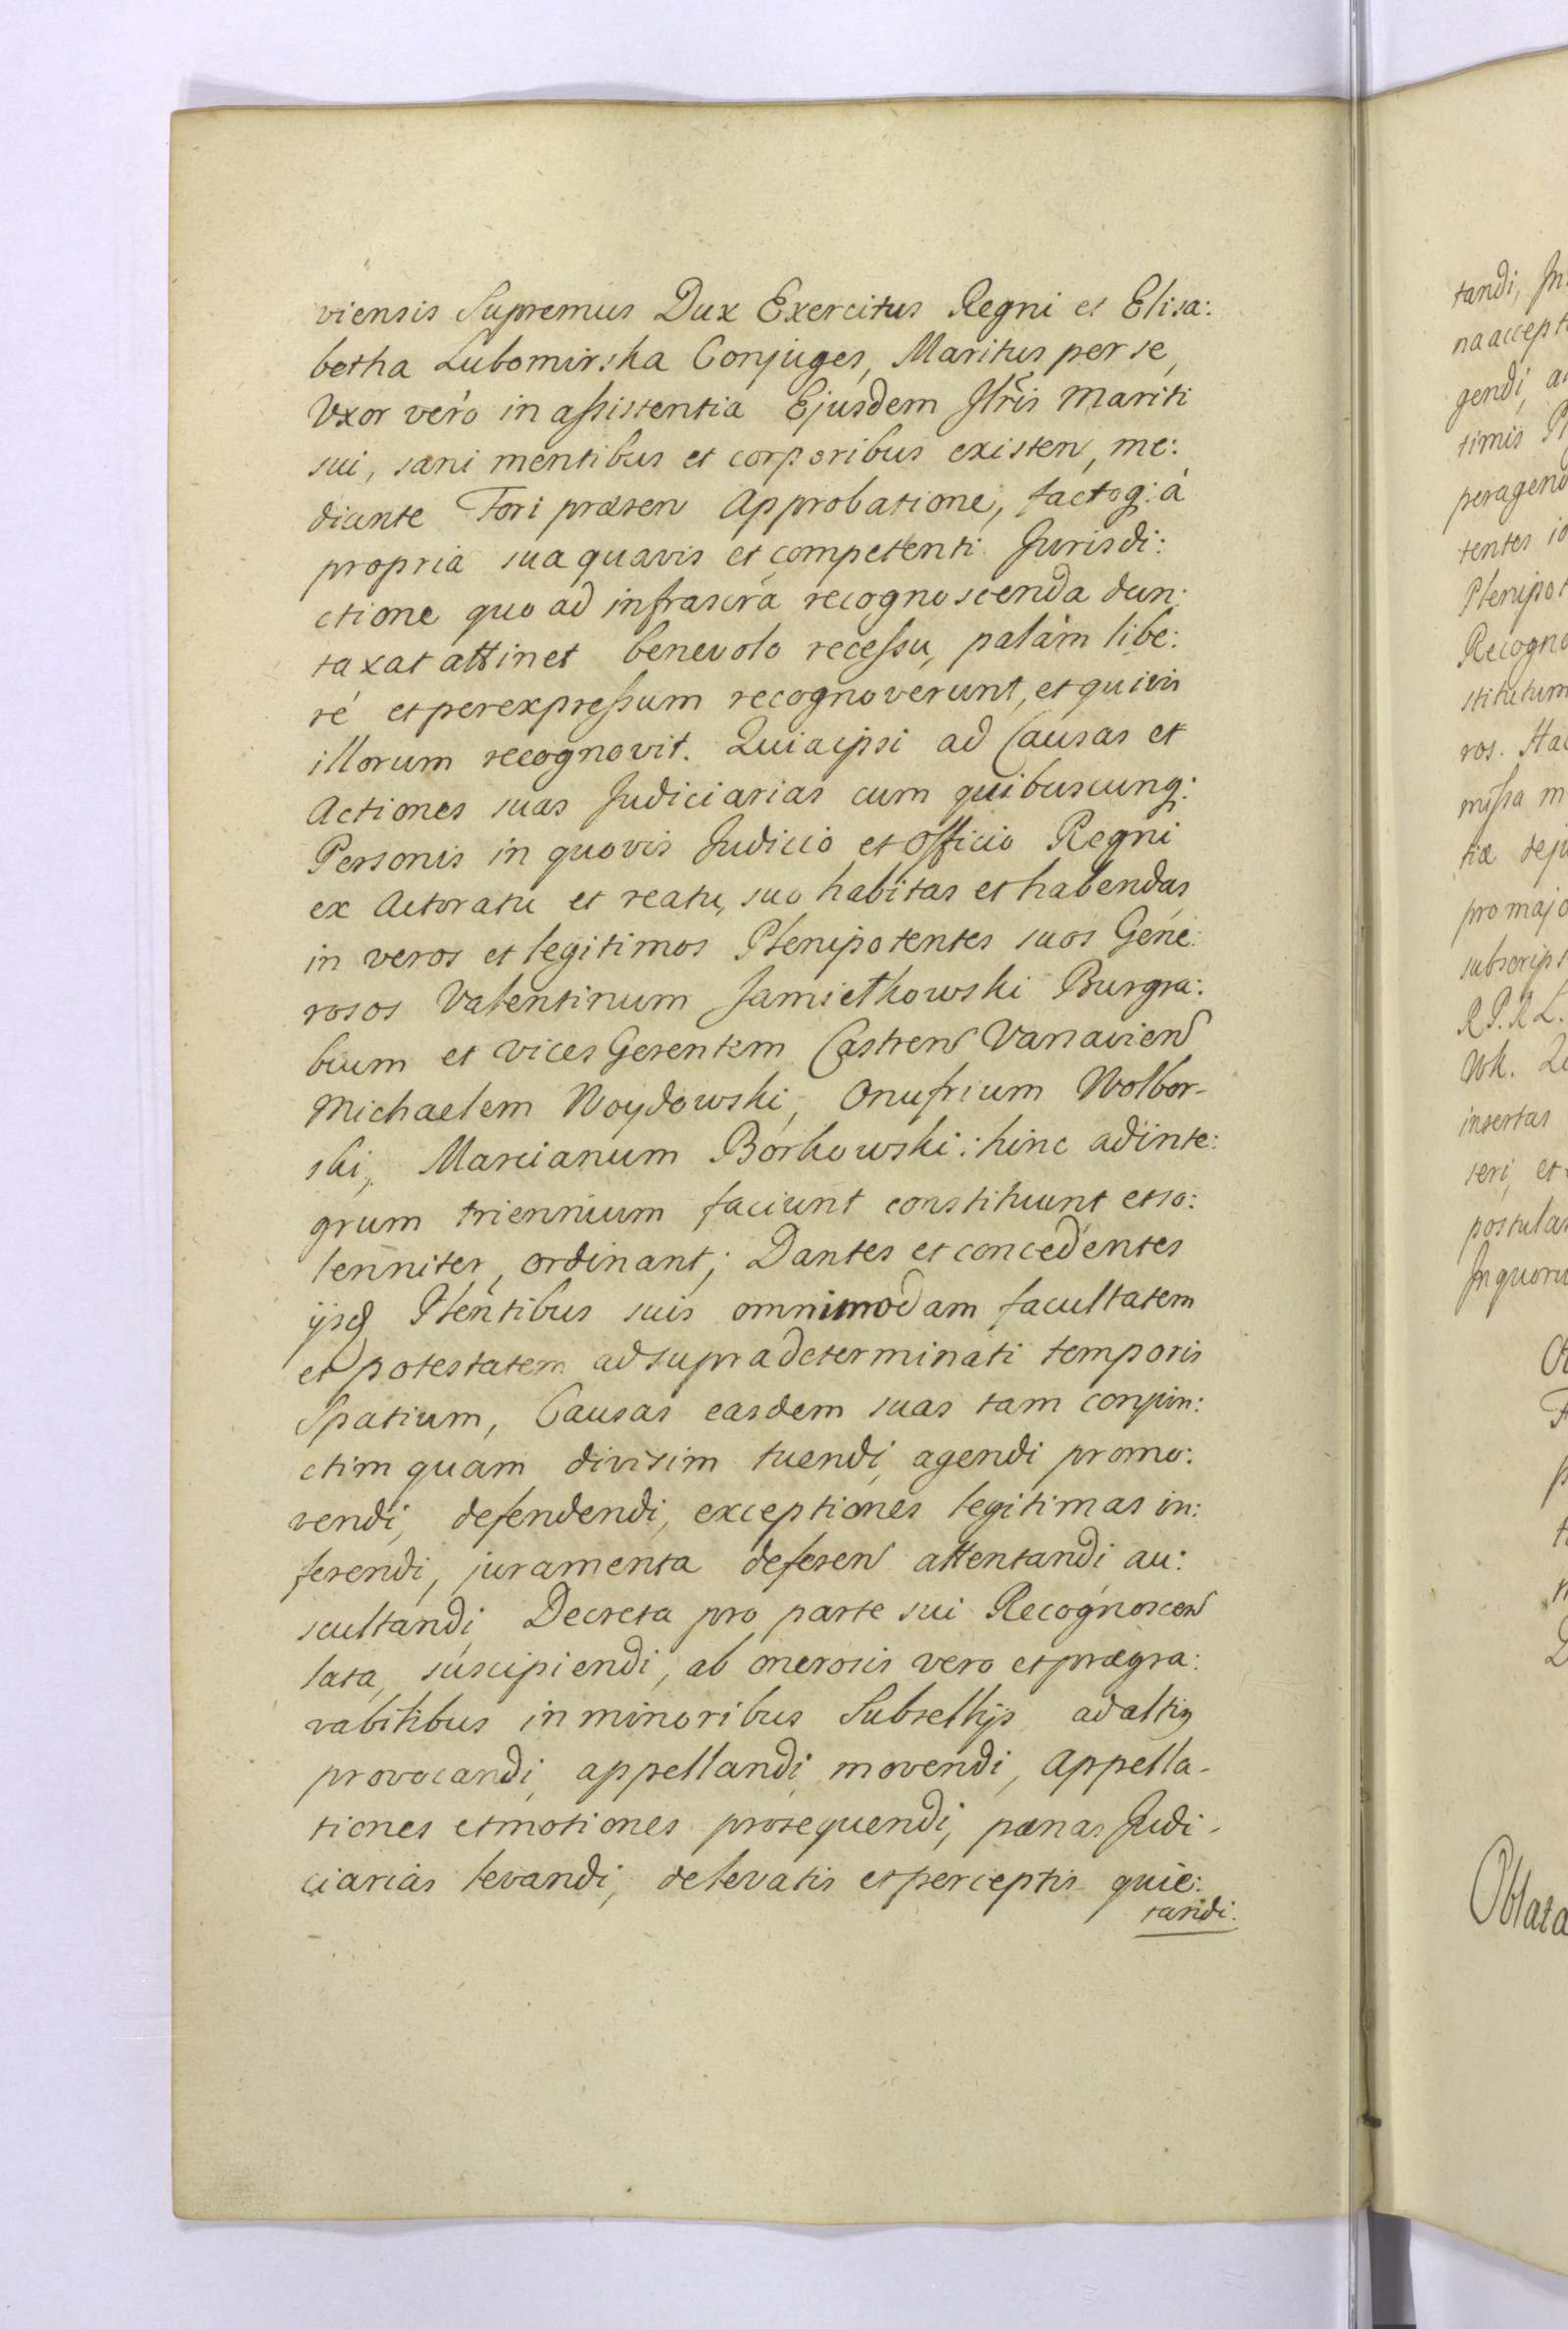 viensis Supremus Dux Exercitus Regni et Elisa:
betha Lubomirska Conjuges, Maritus per se,
Uxor verò in assistentia Ejusdem Illris Mariti
sui, sani mentibus et corporibus existen, me:
diante Fori præsen Approbatione, factoq: à
propria sua quavis et competenti Jurisdi:
ctione quo ad infrascra recognoscenda dun:
taxat attinet benevolo recessu, palàm libe:
ré et per expressum recognoverunt, et quivis
illorum recognovit. Quia ipsi ad Causas et
Actiones suas Judiciarias cum quibuscunq:
Personis in quovis Judicio et Officio Regni
ex Actoratu et reatu, suo habitas et habendas
in veros et legitimos Plenipotentes suos Gene:
rosos Valentinum Jamiethowski Burgra:
bium et vices Gerentem Castren Varsavien
Michaelem Woydowski, Onufrium Wolbor-
ski, Marcianum Borkowski: hinc ad inte:
grum triennium faciunt constituunt et so:
lenniter, ordinant; Dantes et concedentes
ijsq Plentibus suis omnimodam facultatem
et potestatem ad supra determinati temporis
Spatium, Causas easdem suas tam conjun:
ctim quam divisim tuendi, agendi promo:
vendi, defendendi, exceptiones legitimas in:
ferendi, juramenta deferen attentandi au:
scultandi, Decreta pro parte sui Recognoscen
lata, suscipiendi, ab onerosis vero et prægra:
vabilibus in minoribus Subsellijs ad altiq
provocandi, appellandi, movendi, Appella-
tiones et motiones prosequendi, pænas Judi-
ciarias levandi, de levatis et perceptis quie:
tandi.
tandi, In
na accept
gendi, a
timis
peragend
tentes
Plenipot
Recogno
stitutum
ros.
missa m
tiæ
pro majo
subscrips
R P. R L.
insertas
seri, et
postula
In quoru
Oblata